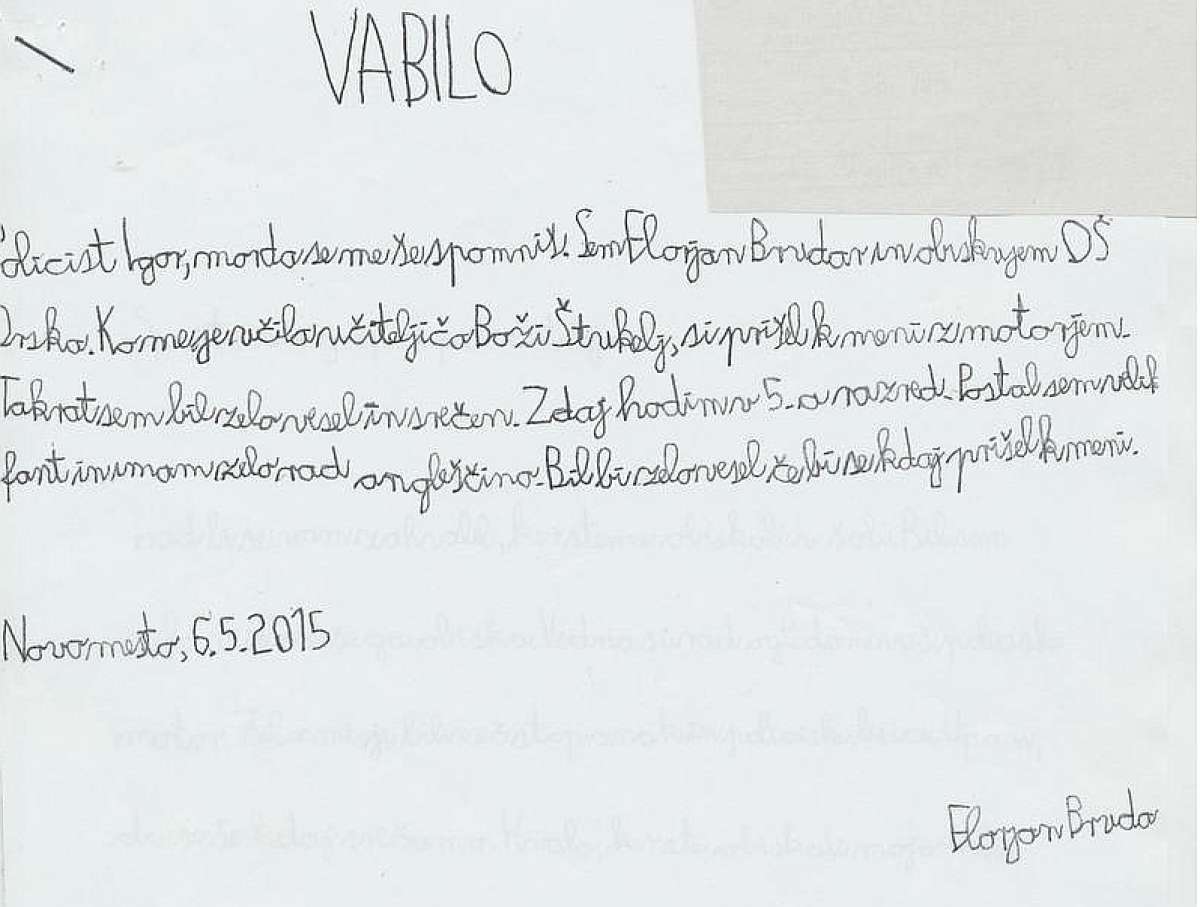 VABILO
Policist Igor, morda se me še spomniš. Sem Florjan Brudar in obiskujem OŠ
Drska. Ko me je učila učiteljičo Boži Štrukelj, si prišel k meni z motorjem.
Takrat sem bil zelo vesel in srečen. Zdaj hodim v 5. a razred. Postal sem velik
fant in imam zelo rad angleščino. Bil bi zelo vesel če bi se kdaj prišel k meni.
Novo mesto, 6.5.2015
Florjan Bruda